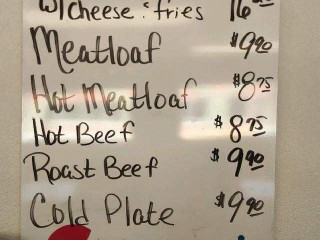 w/cheese & fries 16
Meatloaf $9.90
Hot Meatloaf $8.75
Hot Beef $8.75
Roast Beef $9.90
Cold Plate $9.90